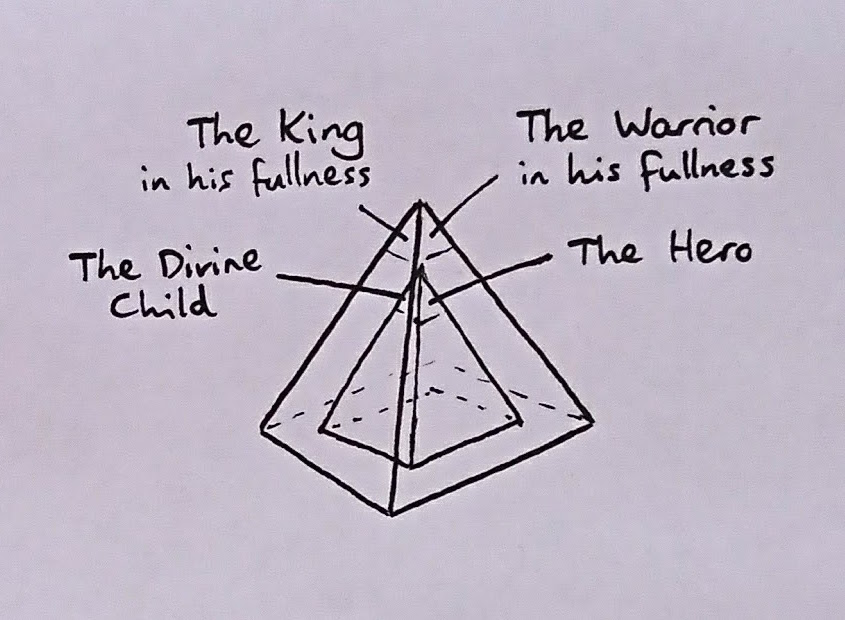 The King
in his fullness
The Warrior
in his fullness
The Divine
Child
The Hero